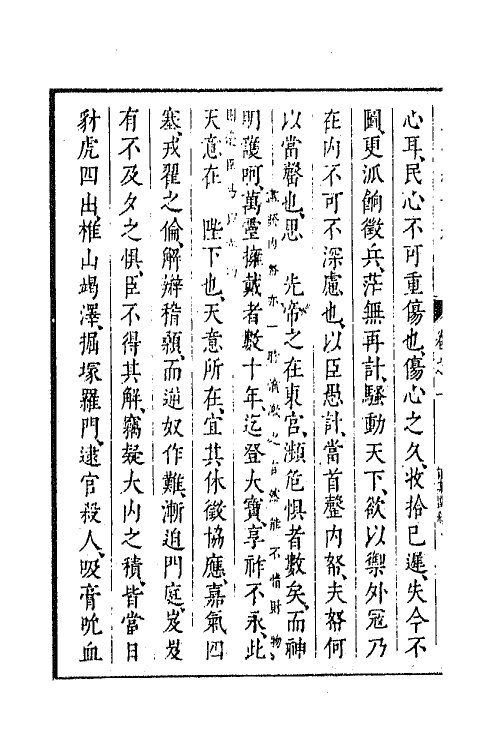 心耳、民心不可重傷也、傷心之久、收拾已遲、失今不
圖、更派餉徵兵、茫無再計、騷動天下、欲以禦外寇、乃
在内不可不深慮也、以臣愚計、當首罄内帑、夫帑何
以當罄也、思　先帝之在東宫、瀕危惧者數矣、而神
明護呵、萬靈擁戴者數十年、迄登大寶、享祚不永、此
天意在　陛下也、天意所在、宜其休徵協應、嘉氣四
塞、戎翟之倫、解辮稽顙、而逆奴作難、漸迫門庭、岌岌
有不及夕之惧、臣不得其解、竊疑大内之積、皆當日
豺虎四出、椎山竭澤、掘塚羅門、逮官殺人、吸膏吮血